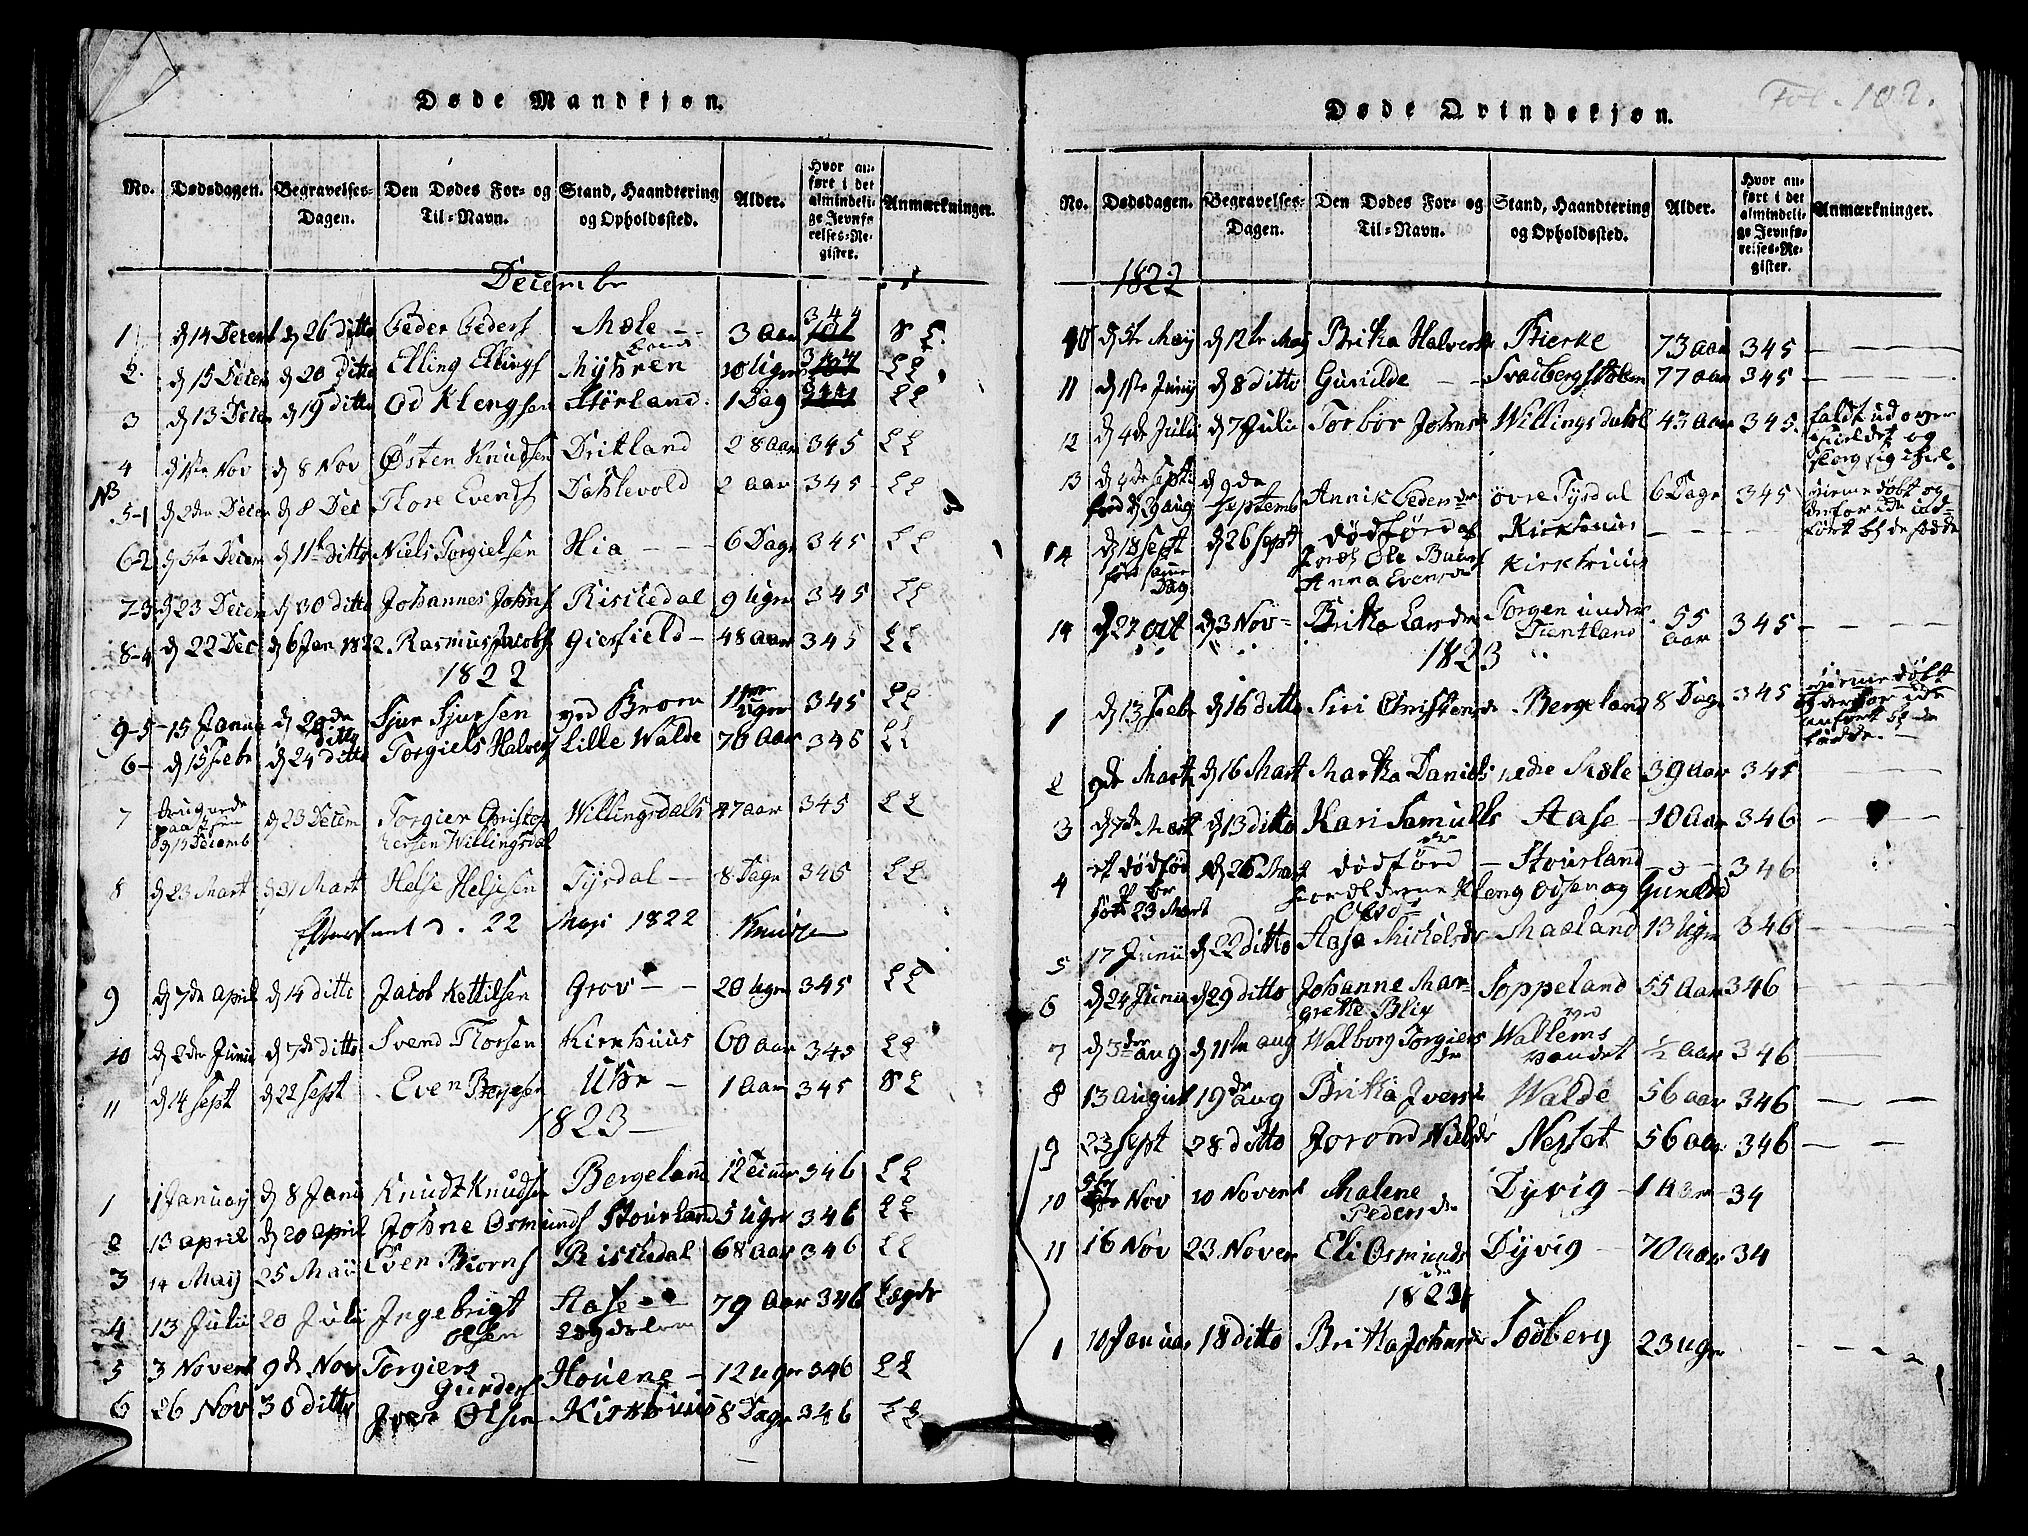 Døde Mandkjøn.
No. Dødsdagen. Begravelses-Dagen. Den Dødes For- og Til-Navn. Stand, Haandtering og Opholdssted. Alder. Hvor anført i det almindelige Jevnførelses-Register. Anmærkninger.
Decembr
1 d 14 Decemb d 26 ditto Peder Peders Mæle 3 Aar 344
2 d 15 Decem d 20 ditto Elling Ellings Myhren 10 Uger
3 d 13 Decem d 19 ditto Od Klengsen Størland 1 Dag
4 d 1ste Nov d 8 Nov Østen Knudsen Drikland 28 Aar 345
5-1 d 2den Decem d 8 Dec Thore Evends Dahlevold 2 Aar 345
6-2 d 5te Decem d 11te ditto Niels Torgielsen Hia 6 Dage 345
7-3 d 23 Decem d 30 ditto Johannes Johns Riskedal 9 Uger 345
8-4 d 22 Dec d 6 Jan 1822 Rasmus Jacobs Gierfield 48 Aar 345
1822
9-5 15 Janua d 20de ditto Sjur Sjursen ved Broen 11 Uger 345
6 d 15 Febr d 24 ditto Torgiels Halvors Lille Walde 76 Aar 345
7 d 23 Decem Torgier Christophersen Willingsdal Willingsdals 47 aar 345
8 d 23 Mart d 31 Mart Helje Heljesen Tysdal 8 Dage 345
d. 22 May 1822
9 d 7de April d 14 ditto Jacob Kettilsen Grov 20 Uger 345
10 d 2den Junii d 7de ditto Svend Thorsen Kirkhuus 60 Aar 345
11 d 14 Sept d 22 Sept Even Børgesen Uhr 1 Aar 345
1823
1 1 Januarj d 8 Janu Knudt Knudsen Bergeland 12 Timer 346
2 13 april d 20 april Johne Osmunds Stourland 5 Uger 346
3 14 May 25 Maii Even Biorns Riskedal 68 Aar 346
4 13 Julii 20 Julii Ingebrigt Olsen Aase Lægdslem 79 Aar 346 Lægds
5 3 Novemb 9de Nov Torgiers Gunders Houene 12 Uger 346
6 26 Nov 30 ditto Iver Olsen Kirkhuus 8 Dage 346
Fol. 102.
Døde Qvindekjøn.
No. Dødsdagen. Begravelses-Dagen. Den Dødes For- og Til-Navn. Stand, Haandtering og Opholdssted. Alder. Hvor anført i det almindelige Jevnførelses-Register. Anmærkninger.
1822
10 d 5te May d 12te May Britha Halvers Bierke 73 aar 345
11 d 1ste Junij d 8 ditto Gunilde 77 aar 345
12 d 4de Julii d 7 Julii Torbor Johns Willingsdahl 43 Aar 345 faldt ud over
13 d 4de Septb fød d 29 aug d 9de Septemb Annik Pedersdr øvre Tysdal 6 Dage 345 hiemmedøbt og derfor ikke indført
14 d 18 Sept født samme Dag d 26 Sept dødfød af Foræl Ole Anna Evensdr Kirkhuus Kirkhuus
14 d 27 Oct d 3 Nov Britha Larsdr Torgen under Tientland 55 Aar 345
1823
1 d 13 Febr d 16 ditto Siri Christensdr Bergeland 8 Dage 345 hiemmedøbt og derfor ikke anført
2 9de Mart d 16 Mart Martha Daniels nedre Mæle 39 Aar 345
3 d 7de Mart d 13 ditto Kari Samuels Aase 10 Aar 346
4 et dødfød P. br født 23 Mart d 26 Mart dødfød Forældrene Kleng Odsen og Gunild Olsdr Stourland 346
5 17 Junii d 22 ditto Aasa Michelsdr Maeland 13 Uger 346
6 d 24 Junii d 29 ditto Johanne Margrethe Blix Soppeland 55 Aar 346
7 d 3der aug d 11te aug Walborg Torgiersdr Wallems ved vandet ½ Aar 346
8 13 august 19de aug Britha Ivers Walde 56 aar 346
9 23 Sept 28 ditto Jorond Nielsdr Nesset 56 aar 346
10 Nov 10 Novemb Malene Pedersdr Dyvig 1 Aar 34
11 16 Nov 23 Novem Eli Osmundsdr Dyvig 70 Aar 34
1824
1 10 Januar 18 ditto Britha Johnsdr Todberg 23 Uger